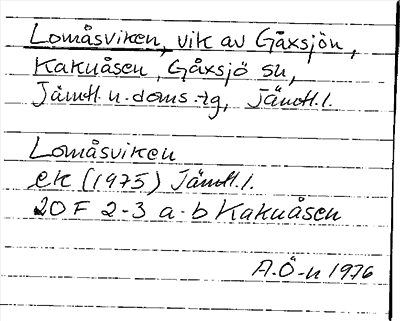 Lomåsviken, vik av Gåxsjön,
Kakuåsen, Gåxsjö sn,
Jämtl. n. doms.-tg, Jämtl. l.
Lomåsviken
ek (1975) Jämtl. l.
20 F 2-3 a-b Kakuåsen
A.Ö-n 1976